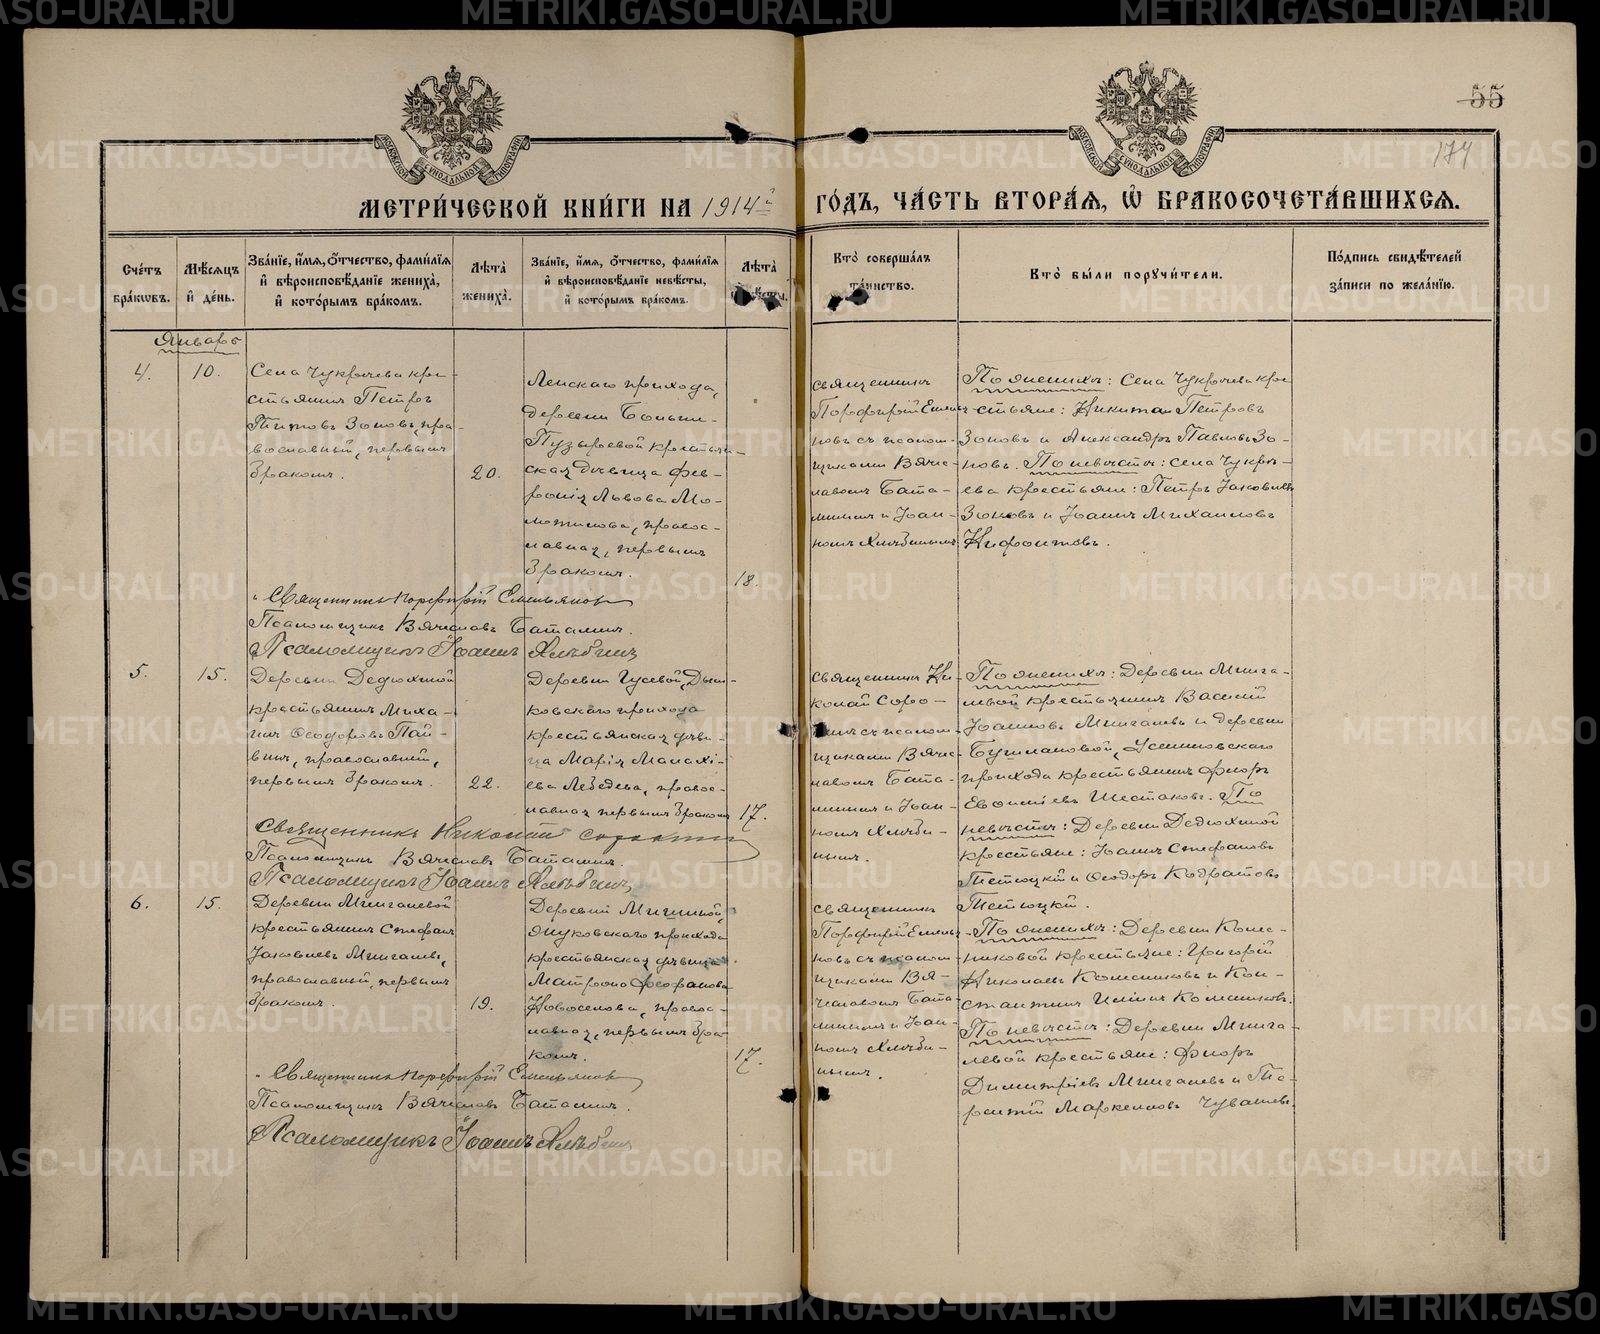 55
174
МЕТРИ́ЧЕСКОЙ КНИ́ГИ НА 1914й ГО́ДЪ, ЧА́СТЬ ВТОРА́Я, Ѽ БРАКОСОЧЕТА́ВШИХСЯ.
Сче́тъ бра́кωвъ.
Мѣ́сяцъ и҆ де́нь.
Зва́нїе, и҆́мя, ѻ҆́тчество, фами́лїя и҆ вѣроисповѣ́данїе жениха̀, и҆ кото́рымъ бра́комъ.
Лѣта̀ жениха̀.
Зва́нїе, и҆́мя, ѻ҆́тчество, фами́лїя и҆ вѣроисповѣ́данїе невѣ́сты, и҆ кото́рымъ бра́комъ.
Лѣта̀
Кто̀ соверша́лъ та́инство.
Кто̀ бы́ли поручи́тели.
По́дпись свидѣ́телей за́писи по жела́нїю.
Январь
4.
10.
Села Чукреева кре-
стьянинъ Петръ
Титовъ Зоновъ, пра-
вославный, первымъ
бракомъ.
20.
Ленскаго прихода,
деревни Больше-
Пузыревой крестьян-
ская дѣвица Фев-
ронія Львова Мо-
лотилова, правос-
лавная, первымъ
бракомъ.
18.
Священникъ
Порфирій Емелья-
новъ съ псалом-
щиками Вяче-
славомъ Бата-
линымъ и Іоан-
номъ Хлѣбинымъ
По женихѣ: Села Чукреева кре-
стьяне: Никита Петровъ
Зоновъ и Александръ Павловъ Зо-
новъ. По невѣстѣ: села Чукре-
ева крестьяне: Петръ Іаковлевъ
Зоновъ и Іоаннъ Михаиловъ
Нифонтовъ.
Священникъ Порфирій Емельяновъ
Псаломщикъ Вячеславъ Баталинъ.
Псаломщикъ Іоаннъ Хлѣбинъ
5.
15.
Деревни Дедюхиной
крестьянинъ Миха-
илъ Ѳеодоровъ Пай-
винъ, православный,
первымъ бракомъ.
22.
Деревни Гусевой, Дым-
ковскаго прихода
крестьянская дѣви-
ца Марія Малахі-
ева Лебедева, правос-
лавная первымъ бракомъ
17.
Священникъ Ни-
колай Соро-
кинъ съ псалом-
щиками Вяче-
славомъ Бата-
линымъ и Іоан-
номъ Хлѣби-
нымъ.
По женихѣ: Деревни Мингa-
левой крестьянинъ Василій
Іоанновъ Мингалевъ и деревни
Бушлановой, Усениновскаго
прихода крестьянинъ Флоръ
Евфиміевъ Шестаковъ. По
невѣстѣ: Деревни Дедюхиной
крестьяне: Іоаннъ Стефановъ
Тетюцкій и Ѳеодоръ Кодратовъ
Тетюцкій.
Священникъ Николай Сорокинъ
Псаломщикъ Вячеславъ Баталинъ.
Псаломщикъ Іоаннъ Хлѣбинъ
6.
15.
Деревни Мингалевой
крестьянинъ Стефанъ
Іаковлевъ Мингалевъ,
православный, первымъ
бракомъ.
19.
Деревни Мишиной,
крестьянская дѣвица
Матрона Ѳеофанова
Новоселова, правос-
лавная, первымъ бра-
комъ.
17.
Священникъ
Порфирій Емелья-
новъ съ псалом-
щиками Вя-
чеславомъ Бата-
линымъ и Іоан-
номъ Хлѣби-
нымъ.
По женихѣ: Деревни
крестьяне: Григорій
Николаевъ и Кон-
стантинъ
По невѣстѣ: Деревни Минга-
левой крестьяне: Флоръ
Димитріевъ Мингалевъ и Те-
рентій Маркеловъ Чувашевъ.
Священникъ Порфирій Емельяновъ
Псаломщикъ Вячеславъ Баталинъ.
Псаломщикъ Іоаннъ Хлѣбинъ
METRIKI.GASO-URAL.RU